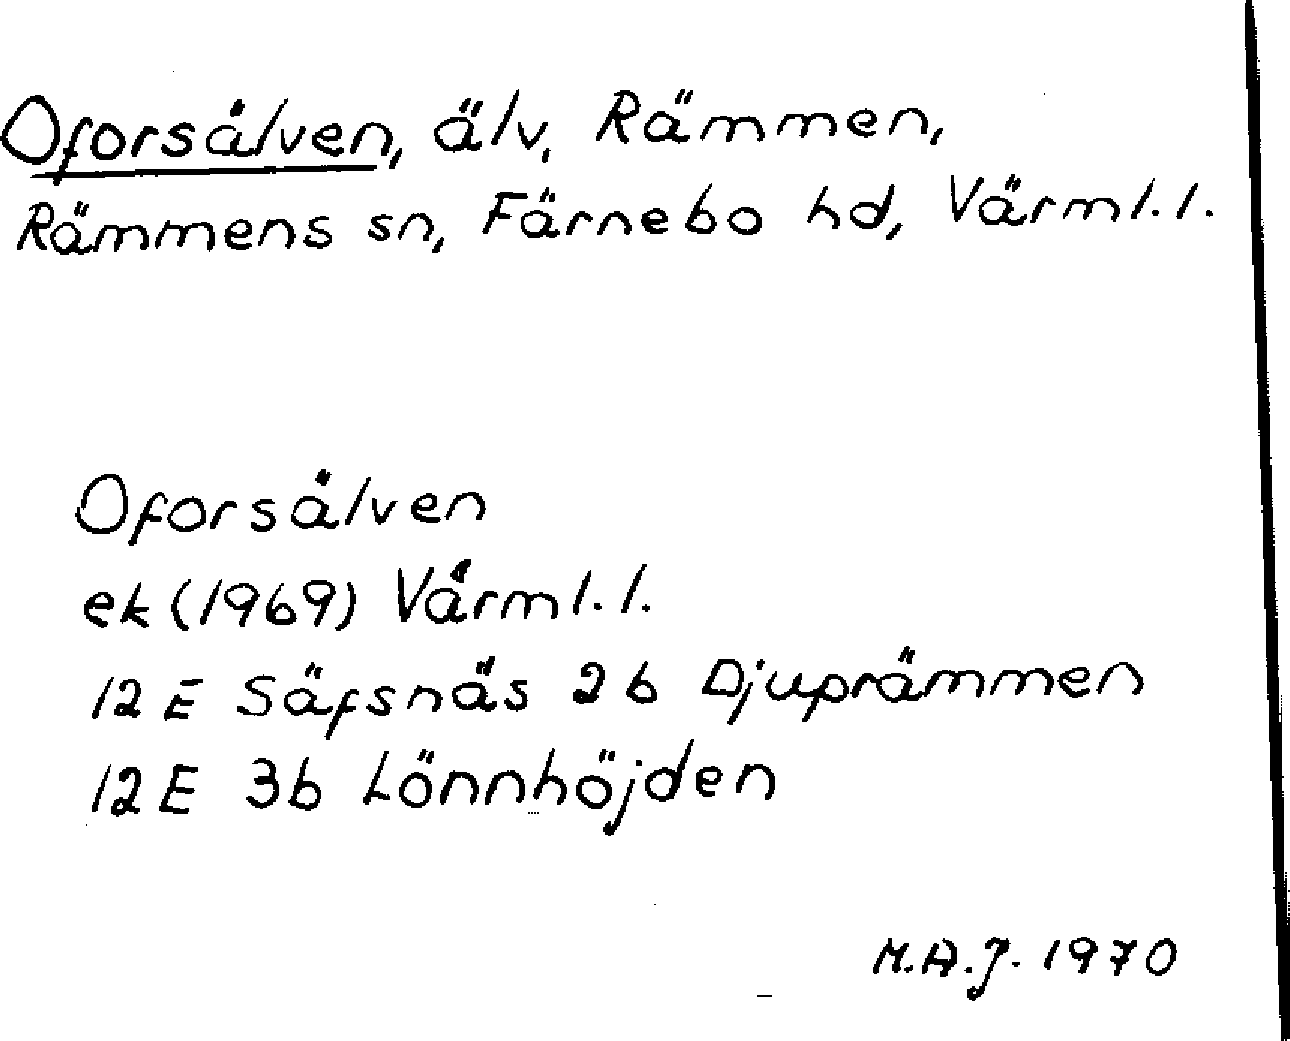 Oforsälven, älv, Rämmen,
Rämmens sn, Färnebo hd, Värml. l.
Oforsälven
ek (1969) Värml. l.
12 E Säfsnäs 2 b Djuprämmen
12 E 3b Lönnhöjden
M.A.J. 1970